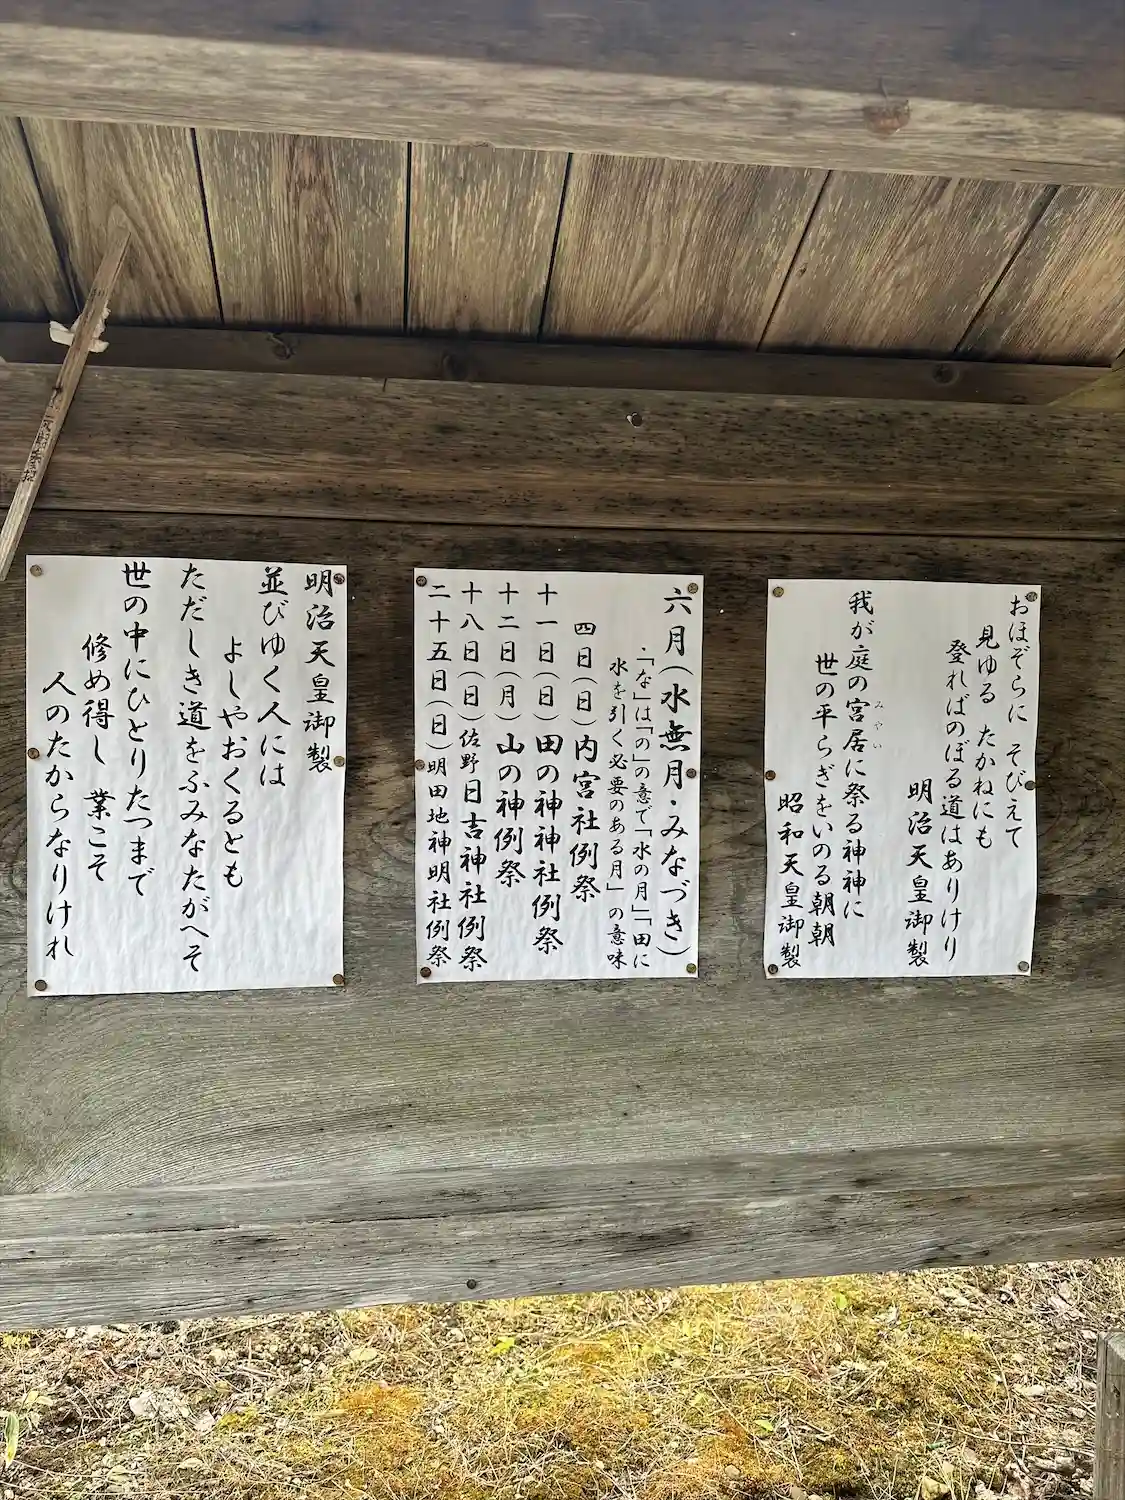 おほぞらに そびえて
見ゆる たかねにも
登ればのぼる道はありけり
明治天皇御製
我が庭の宮居に祭る神神に
みやい
世の平らぎをいのる朝朝
昭和天皇御製
六月(水無月・みなづき)
・「な」は「の」の意で「水の月」「田に
水を引く必要のある月」の意味
四日(日)内宮社例祭
十一日(日)田の神神社例祭
十二日(月)山の神例祭
十八日(日)佐野日吉神社例祭
二十五日(日)明田地神明社例祭
明治天皇御製
並びゆく人には
よしやおくるとも
ただしき道をふみなたがへそ
世の中にひとりたつまで
修め得し 業こそ
人のたからなりけれ